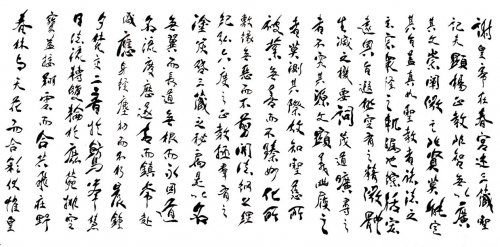 皇帝在春宮述三藏聖
記夫顯揚正教非智無以廣
其文崇闡微言非賢莫能定
其旨蓋真如聖教者諸法之
玄宗眾經之軌躅也綜括宏
遠奧旨遐極空有之精微體
生滅之機要詞茂道曠尋之
者不究其源文顯義幽履之
者莫測其際故知聖慈所
被業無善而不臻妙化所
敷緣無惡而不剪開法網之綱
紀弘六度之正教拯群有之
塗炭啟三藏之秘扃是以名
無翼而長飛道無根而永固道
名流慶歷遂古而鎮常赴
感應身經塵劫而不朽晨鐘
夕梵交二音於鷲峰慧
日法流轉雙輪於鹿苑排空
寶蓋接翔雲而合共飛莊野
春林與天花而合彩伏惟皇